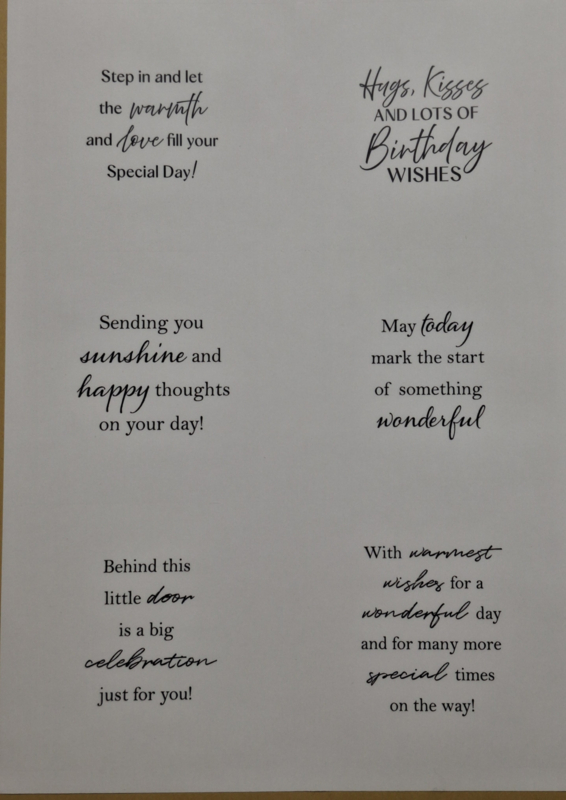 Step in and let
the warmth
and love fill your
Special Day!
Hugs, Kisses
AND LOTS OF
Birthday
WISHES
Sending you
sunshine and
happy thoughts
on your day!
May today
mark the start
of something
wonderful
Behind this
little door
is a big
celebration
just for you!
With warmest
wishes for a
wonderful day
and for many more
special times
on the way!